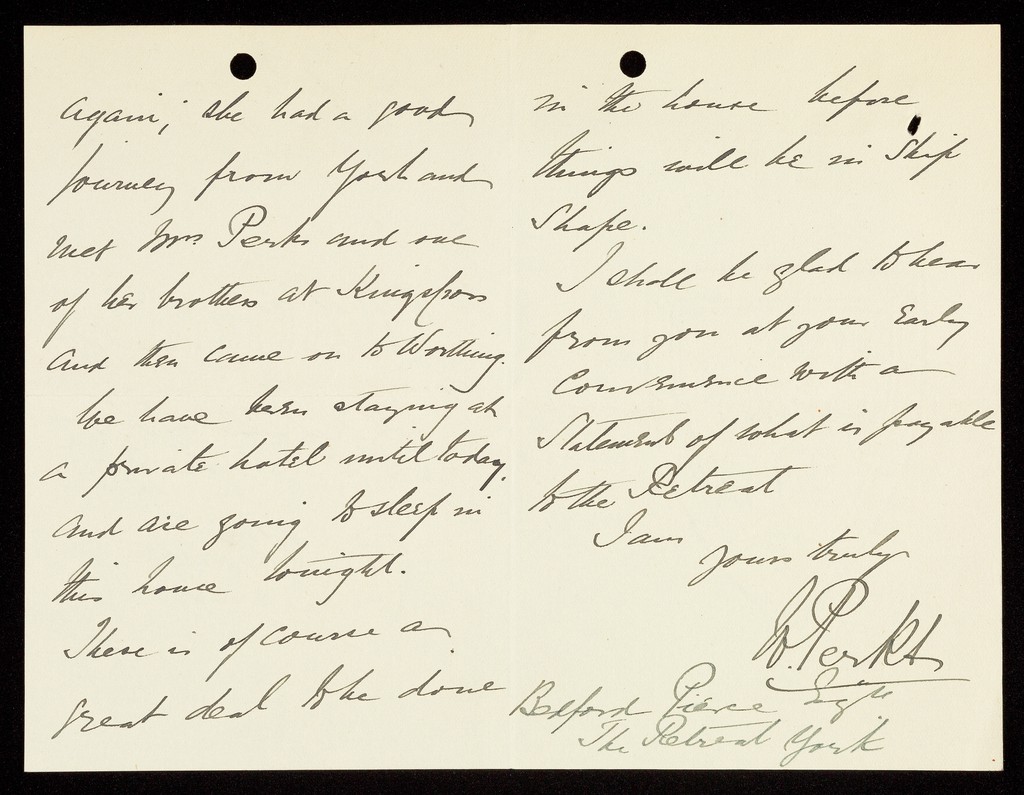 again; she had a good
journey from York and
met Mrs. Perks and one
of her brothers at Kings Cross
and then came on to Worthing.
We have been staying at
a private hotel until today,
and are going to sleep in
this house tonight.
There is of course a
great deal to be done
in the house before
things will be in Ship
Shape.
I shall be glad to hear
from you at your Early
Convenience with a
Statement of what is payable
to the Retreat
I am
yours truly
W. Perks
Bedford Pierce Esqre
The Retreat York